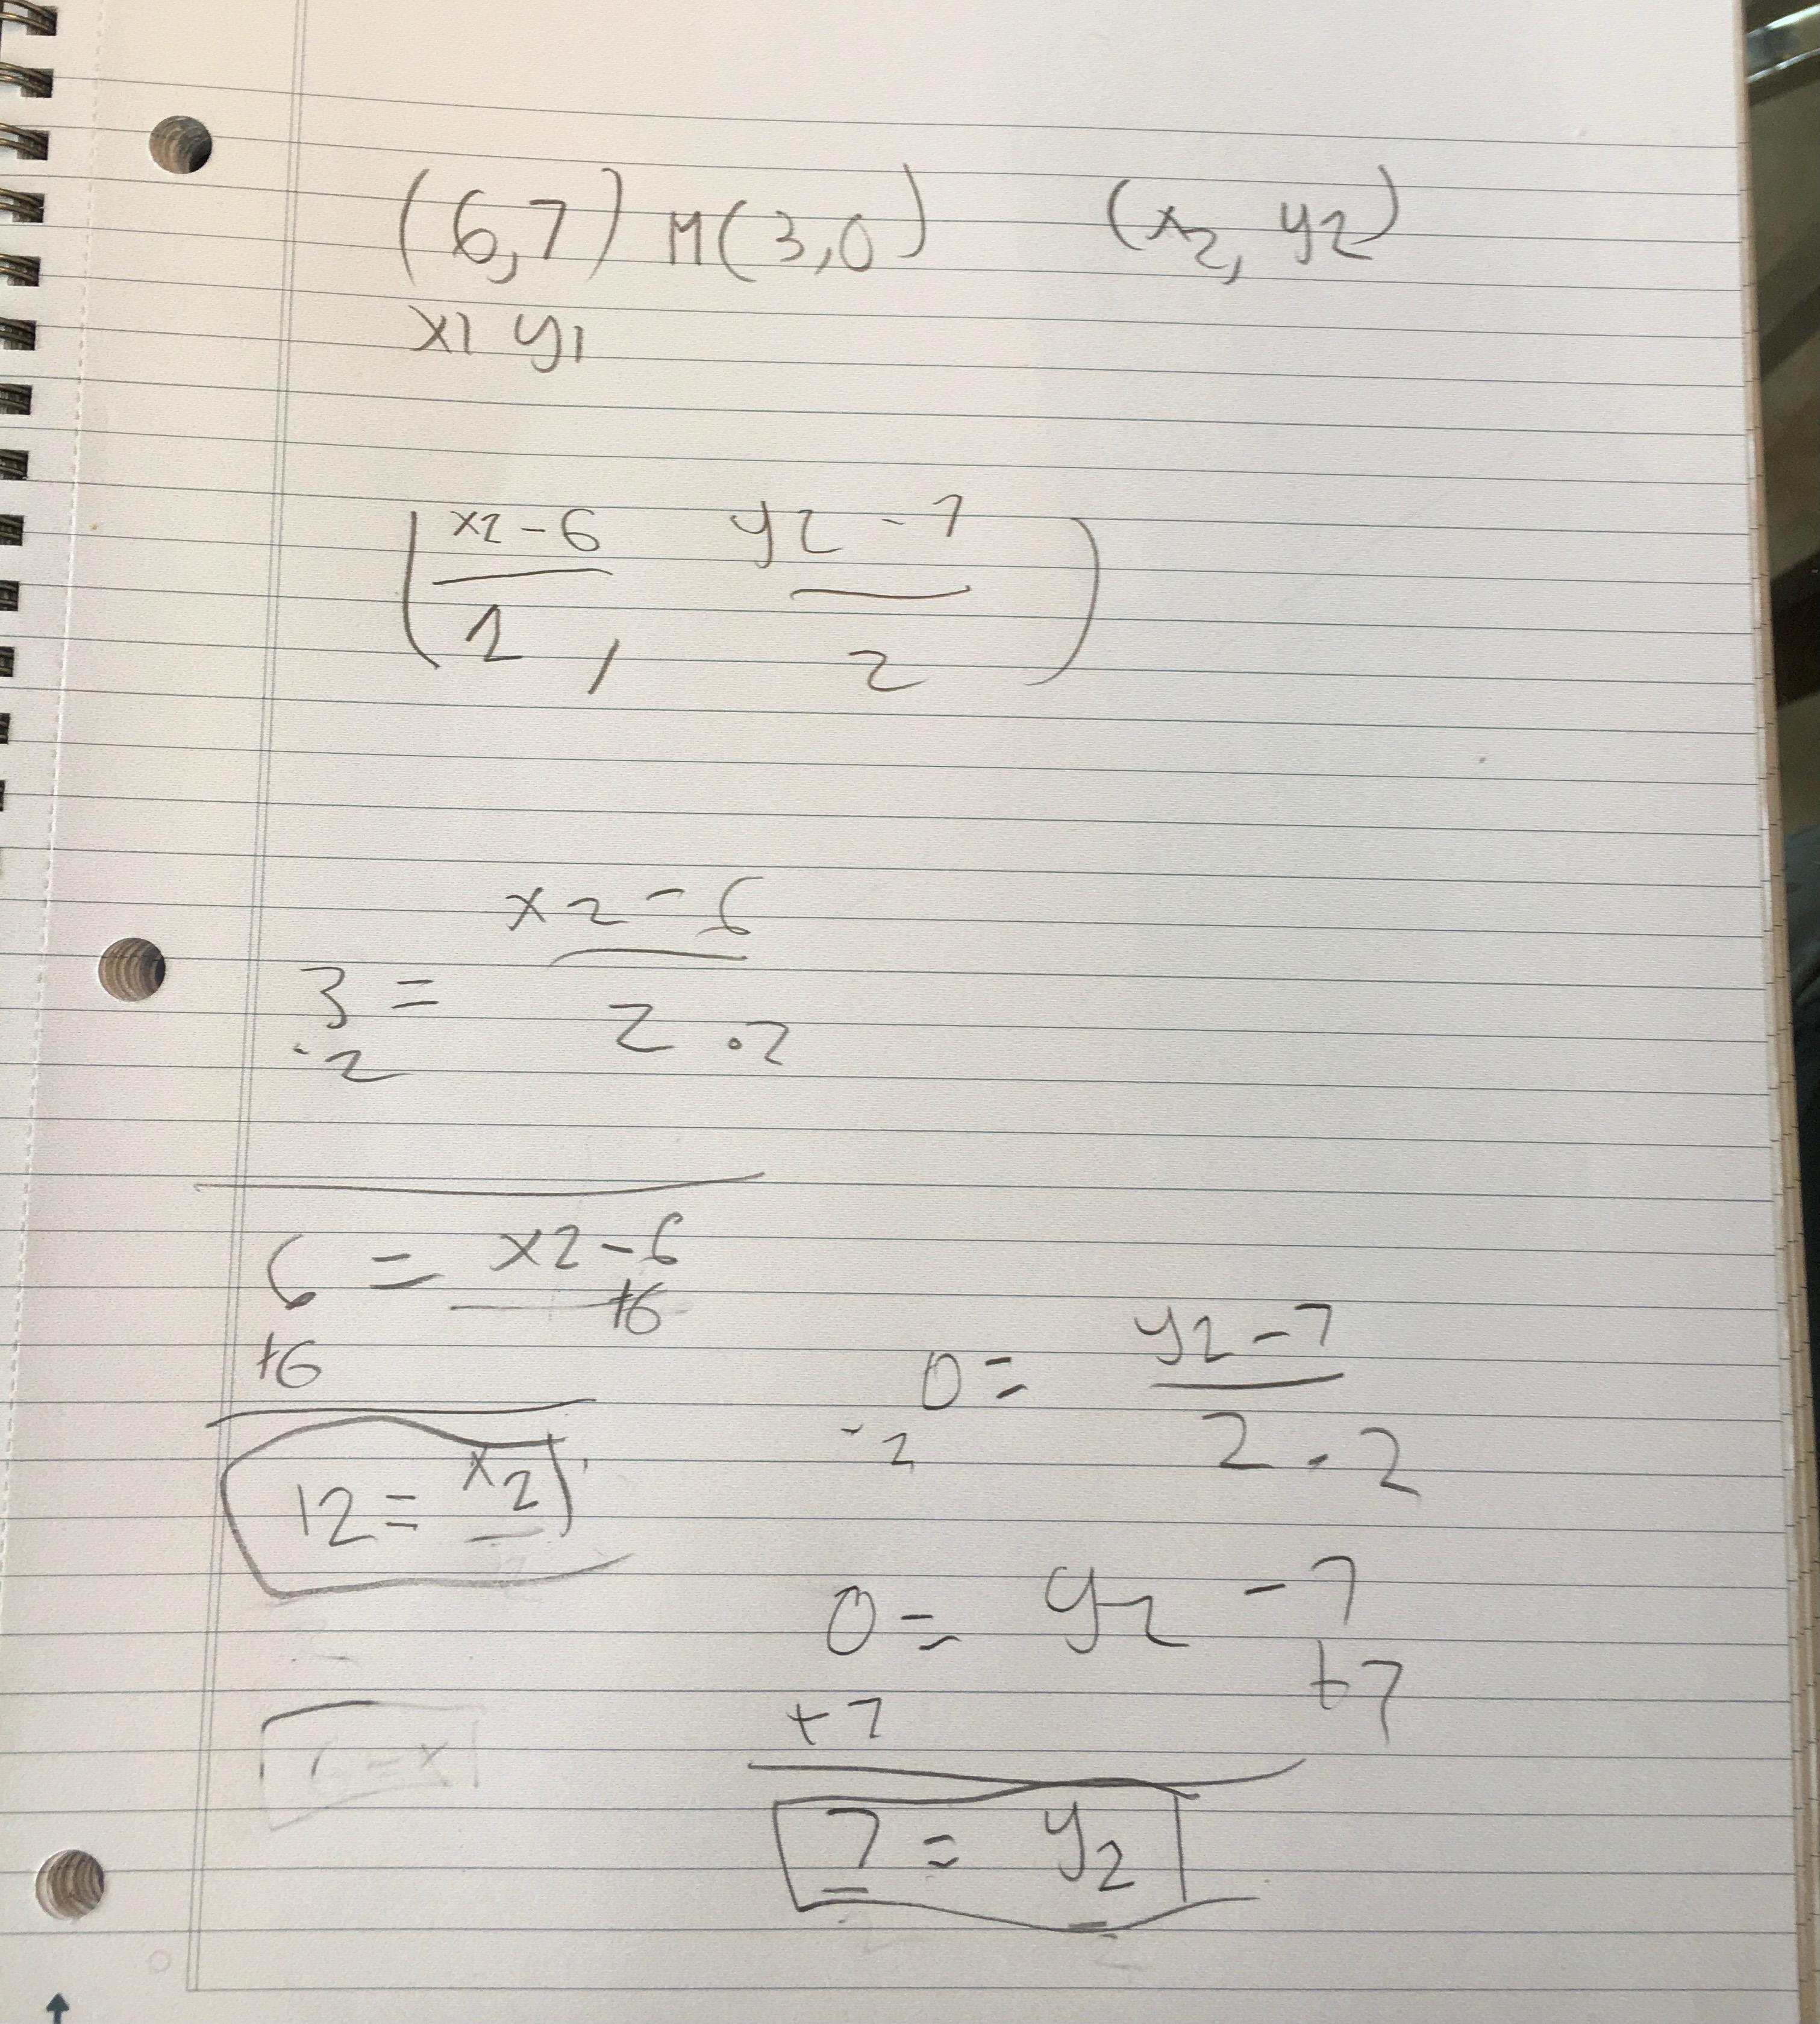 (6,7) M(3,0) (x2, y2)
x1 y1
(x2-6 y2-7)
2 , 2
x2-6
3 =
2 · 2
·2
6 = x2-6
+6
+6
12 = x2
y2-7
0 =
2 · 2
·2
0 = y2 - 7
+7
+7
7 = y2